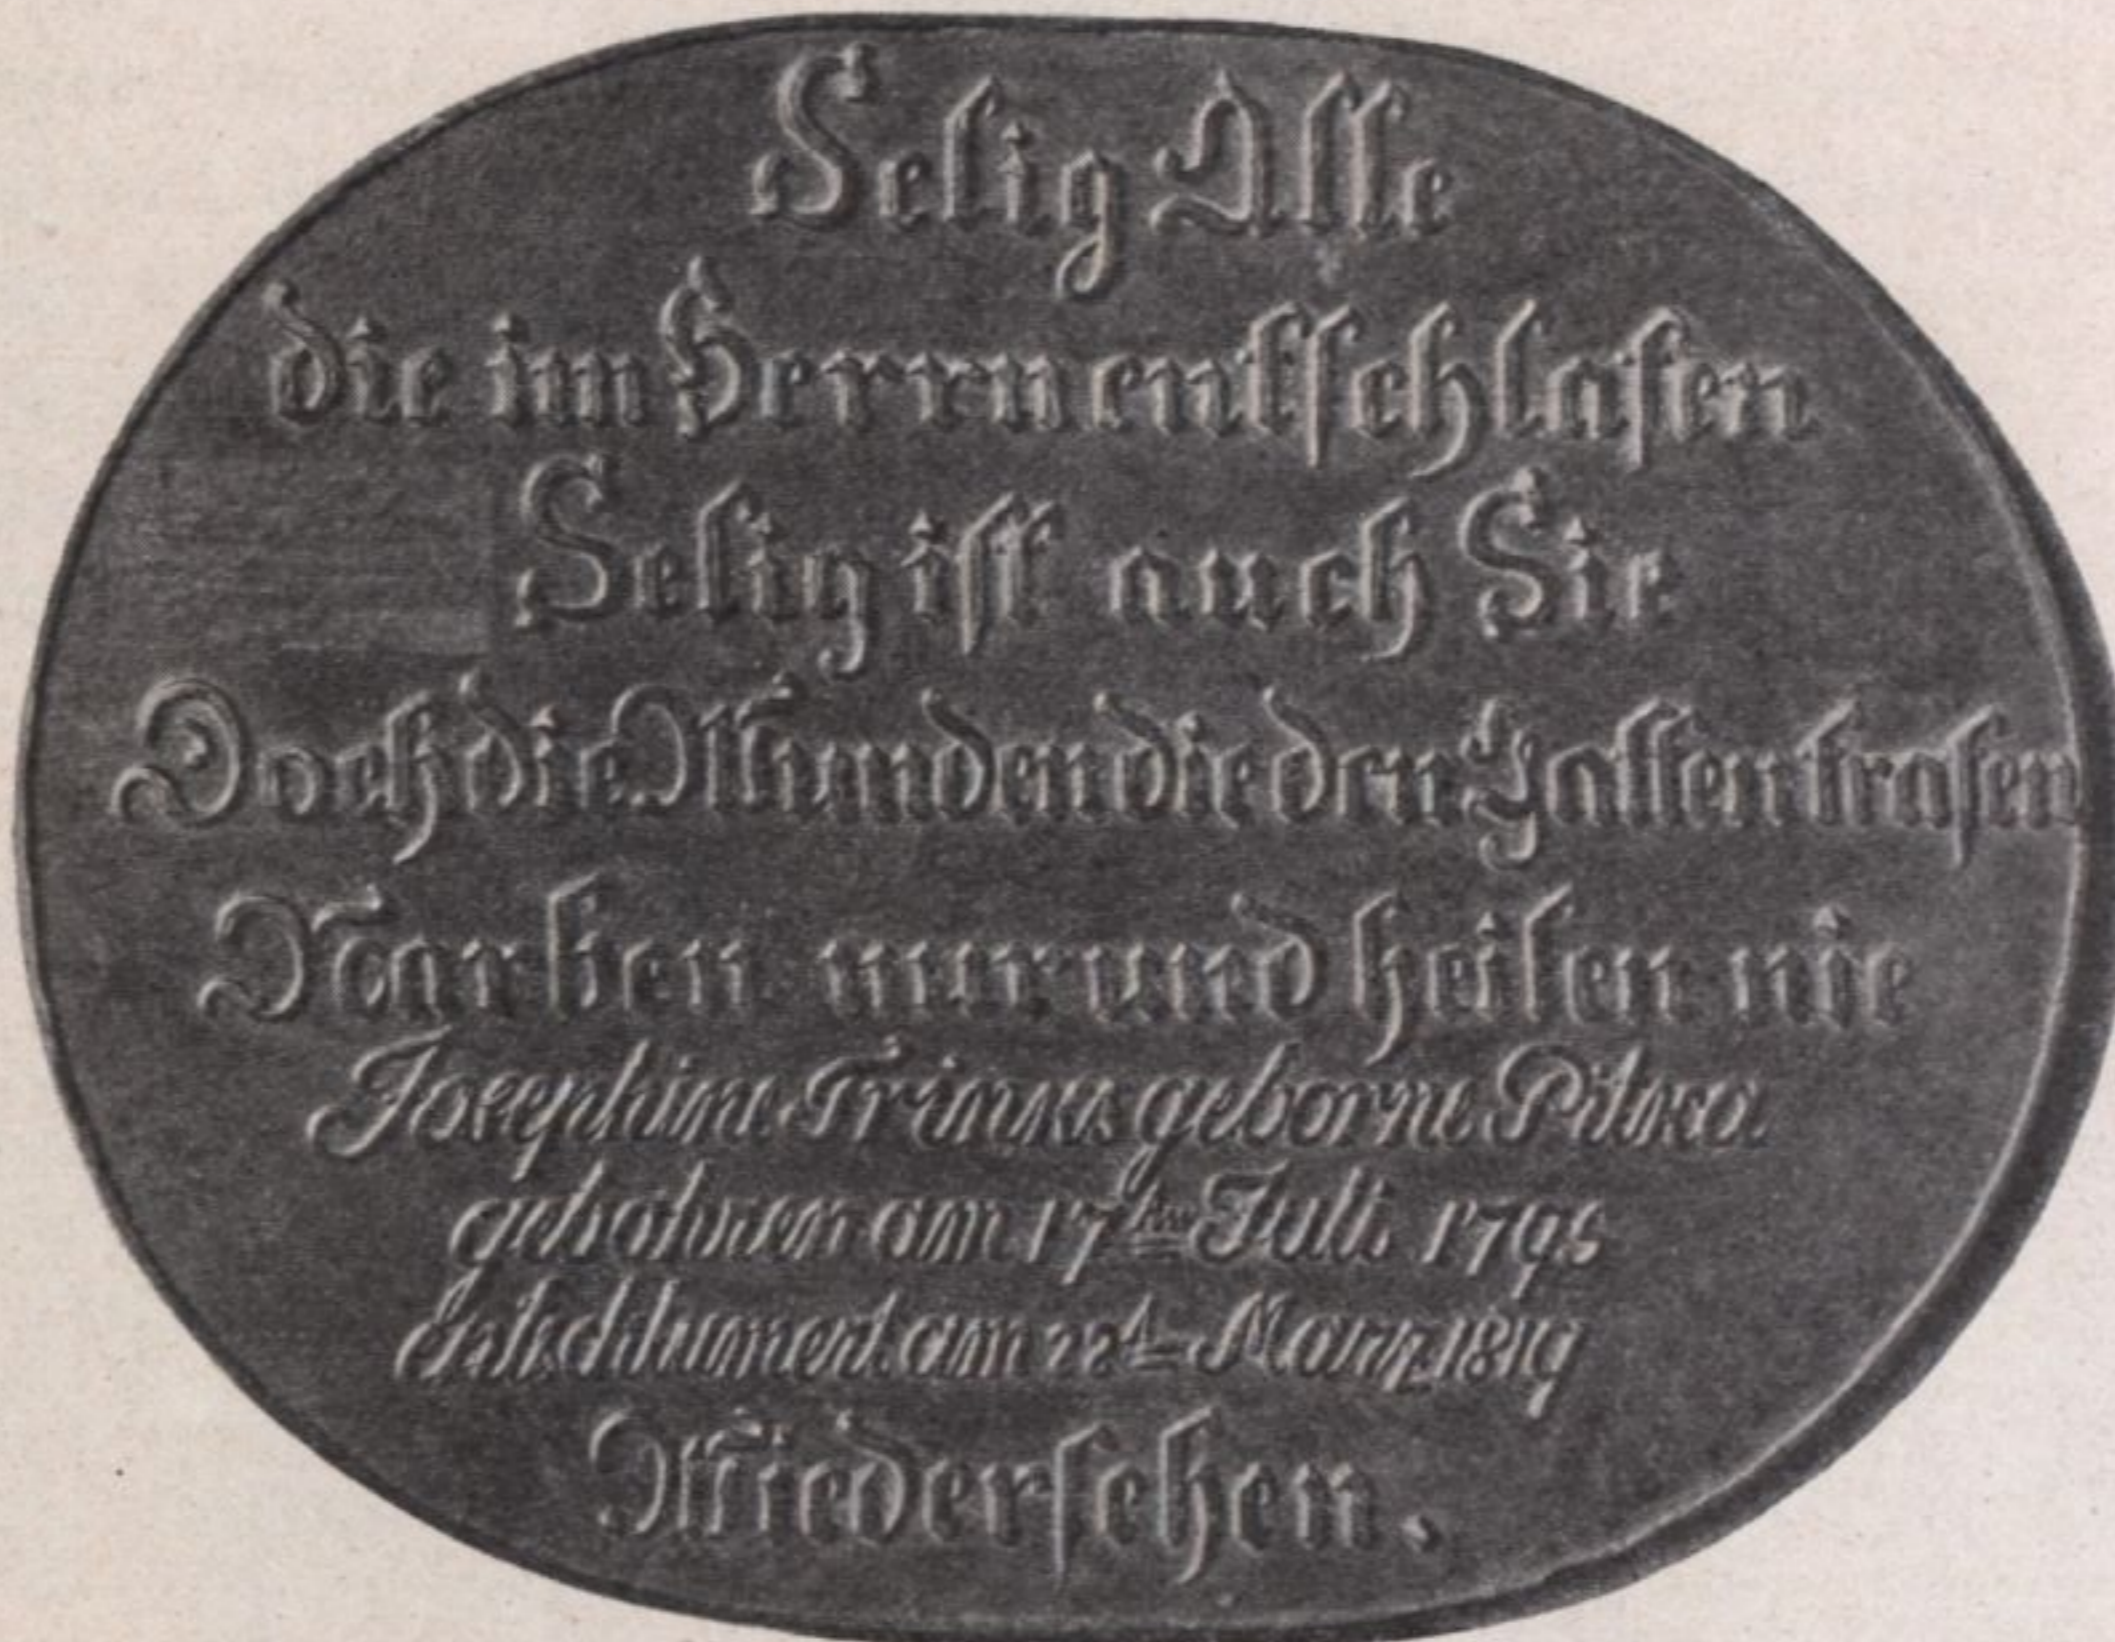 Selig Alle
die im Herrn entschlafen
Selig ist auch Sie
Doch die Wunden die den Gatten trafen
Narben nur und heilen nie
Josephine geborne
gebohren am 17ten Juli 1795
Entschlumert am 1819
Wiedersehen.